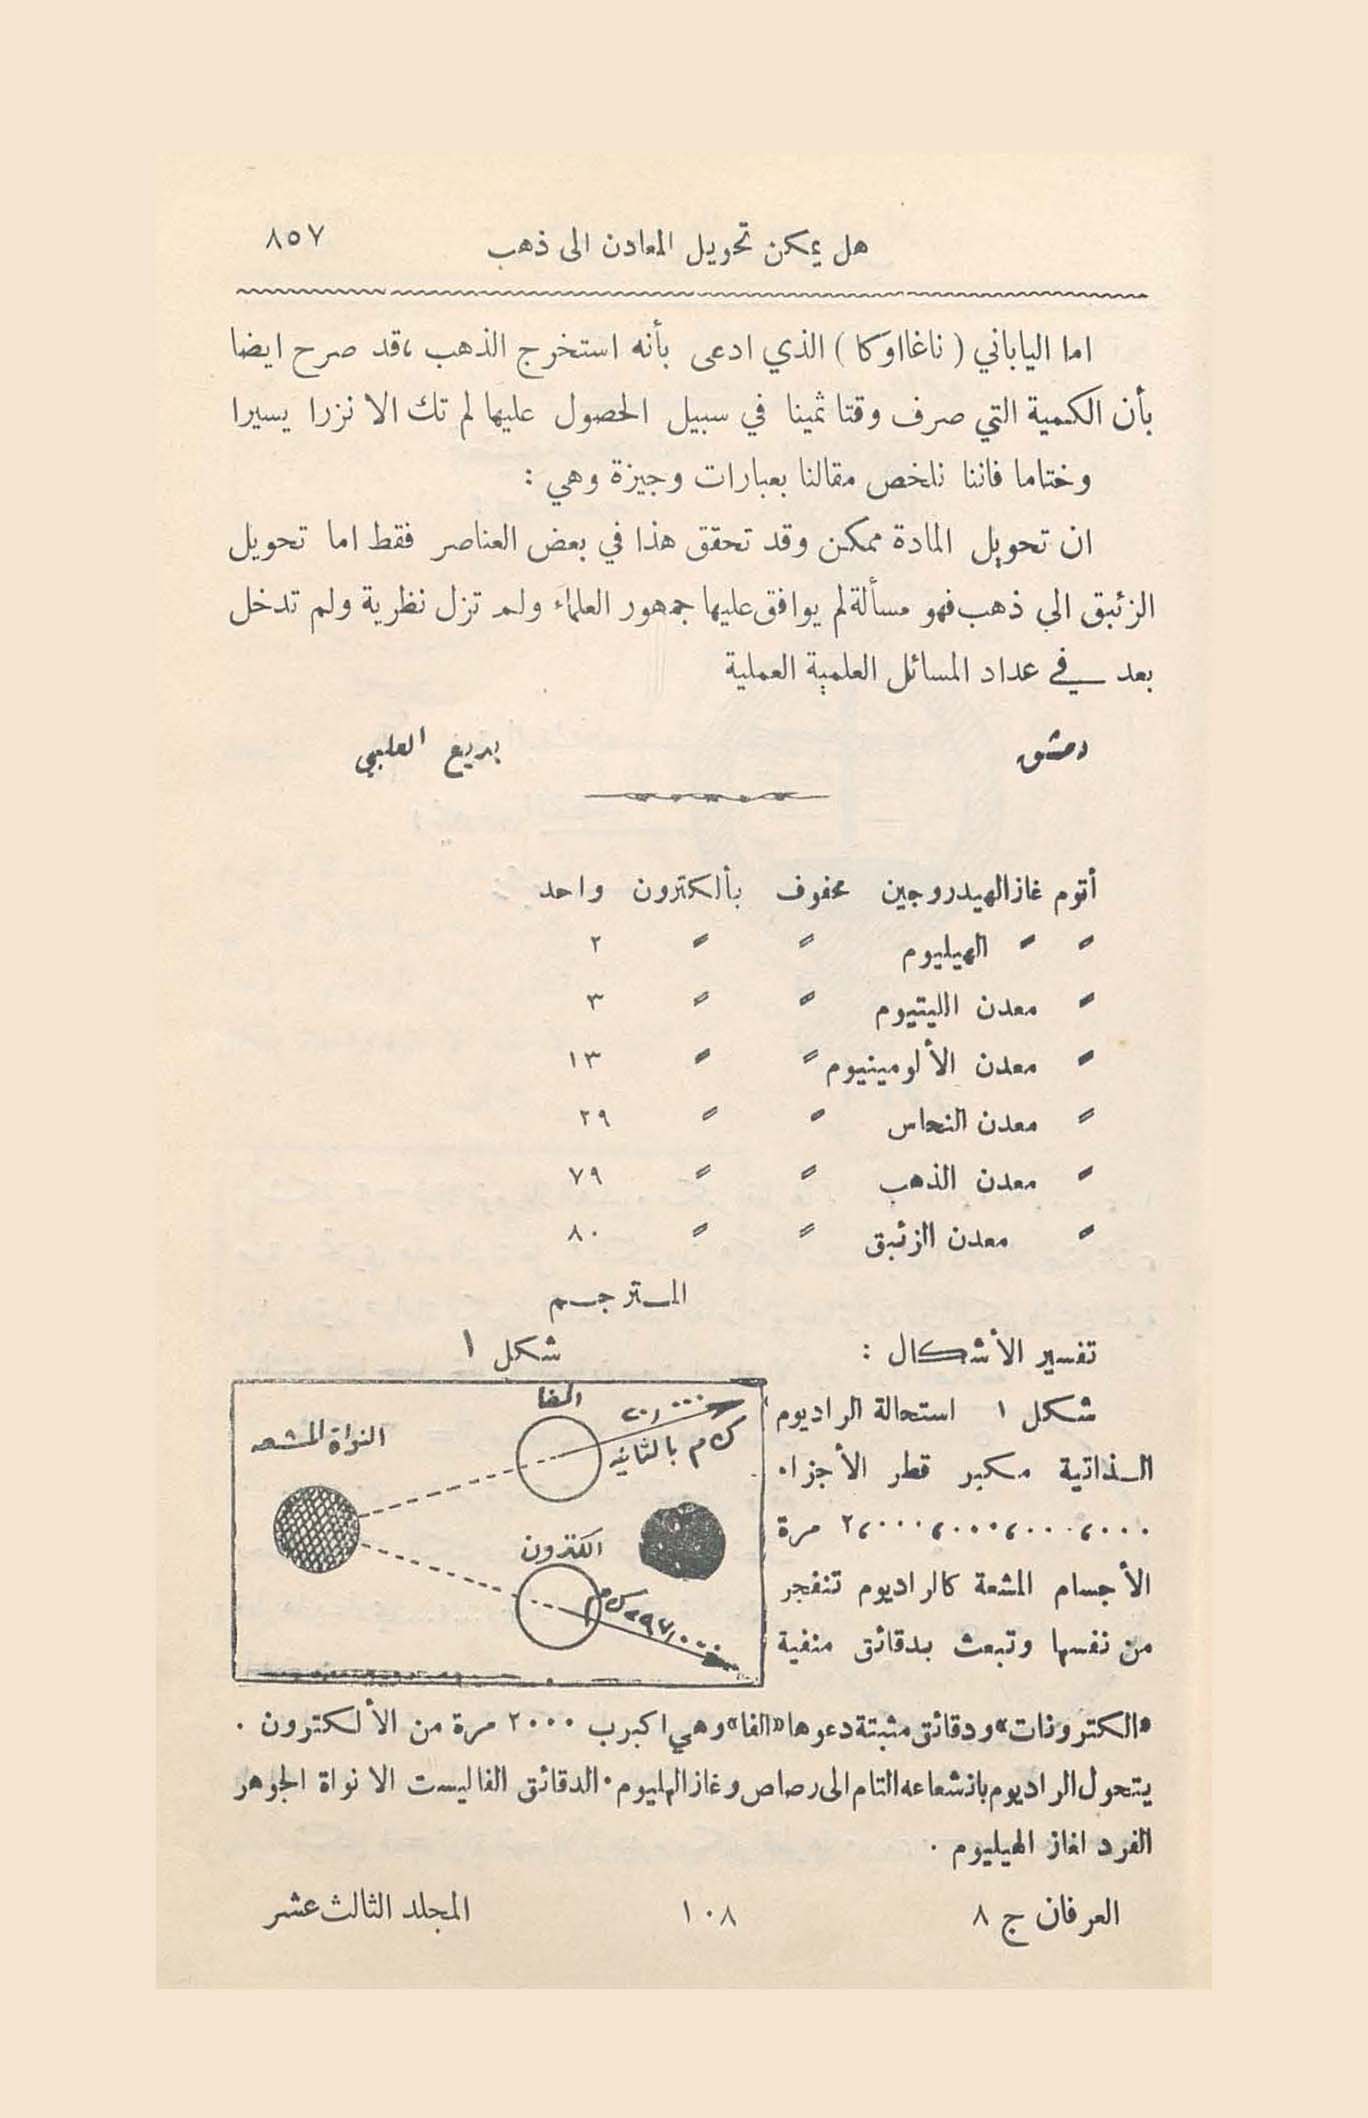 هل يمكن تحويل المعادن الى ذهب ٨٥٧
اما الياباني ( ناغااوكا ) الذي ادعى بأنه استخرج الذهب ،قد صرح ايضا
بأن الكمية التي صرف وقتا ثمينا في سبيل الحصول عليها لم تك الا نزرا يسيرا
وختاما فاننا نلخص مقالنا بعبارات وجيزة وهي :
ان تحويل المادة ممكن وقد تحقق هذا في بعض العناصر فقط اما تحويل
الزئبق الى ذهب فهو مسألة لم يوافق عليها جمهور العلماء ولم تزل نظرية ولم تدخل
بعد في عداد المسائل العلمية العملية
دمشق بديع العلبي
أتوم غاز الهيدروجين محفوف بألكترون واحد
〃 〃 الهيليوم 〃 〃 ٢
〃 معدن الليتيوم 〃 〃 ٣
〃 معدن الألومينيوم 〃 〃 ١٣
〃 معدن النحاس 〃 〃 ٢٩
〃 معدن الذهب 〃 〃 ٧٩
〃 معدن الزئبق 〃 〃 ٨٠
المترجم
تفسير الأشكال :
شكل ١ استحالة الراديوم
الذاتية مكبر قطر الأجزاء
٢،٠٠٠،٠٠٠،٠٠٠،٠٠٠ مرة
الأجسام المشعة كالراديوم تنفجر
من نفسها وتبعث بدقائق منفية
شكل ١
الفا
٢٠،٠٠٠
ك م بالثانيه
النواة المشعه
الكترون
٢٩٧،٠٠٠ ك م
«الكترونات» ودقائق مثبتة دعوها «الفا» وهي اكبرب ٢٠٠٠ مرة من الألكترون .
يتحول الراديوم بانشعاعه التام الى رصاص وغاز الهليوم . الدقائق الفا ليست الا نواة الجوهر
الفرد اغاز الهيليوم .
العرفان ج ٨ ١٠٨ المجلد الثالث عشر